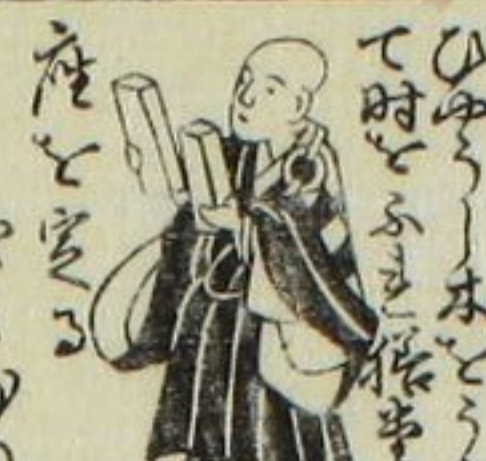 ひやうし木をう
て時をふれ膳
座を定る